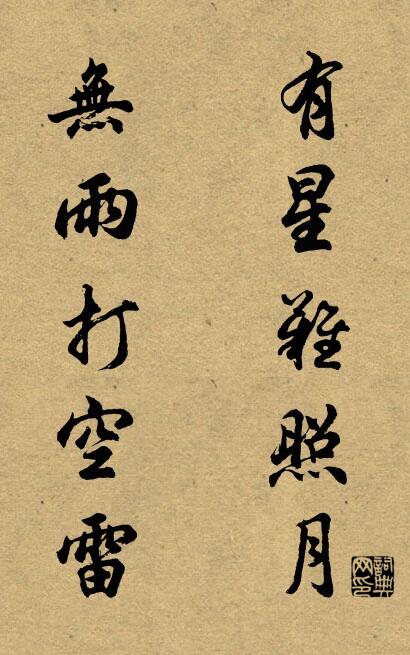 有星難照月
無雨打空雷
詞典网印